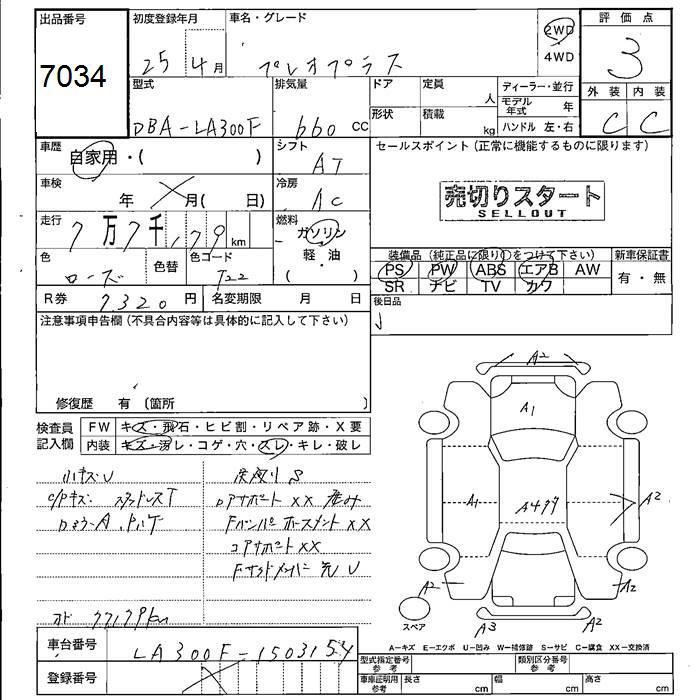 出品番号
7034
初度登録年月
25 4月
車名・グレード
プレオプラス
2WD
4WD
評価点
3
外装 内装
C C
型式
DBA-LA300F
排気量
660 CC
ドア 定員
人
形状 積載
kg
ディーラー・並行
モデル年式 年
ハンドル 左・右
車歴
自家用・( )
シフト
AT
セールスポイント(正常に機能するものに限ります)
売切りスタート
SELLOUT
車検
年 月( 日)
冷房
AC
走行
7万7千,179 km
燃料
ガソリン
軽・油
( )
色
ローズ
色替
色コード
T22
装備品(純正品に限り○をつけて下さい)
PS PW ABS エアB AW
SR ナビ TV カワ
新車保証書
有・無
R券 7320円
名変期限 月 日
後日品
注意事項申告欄(不具合内容等は具体的に記入して下さい)
修復歴 有〔箇所 〕
検査員記入欄
FW キズ・飛石・ヒビ割・リペア跡・X要
内装 キズ・汚レ・コゲ・穴・スレ・キレ・破レ
小キズU
C/Pキズ
Fバンパーホースメント XX
コアサポート XX
オド 77179km
A2
A1
A1
A2
A2
A2
A3
A2
スペア
A-キズ E-エクボ U-凹み W-補修跡 S-サビ C-腐食 XX-交換済
車台番号
LA300F-1503154
登録番号
型式指定番号 参考
類別区分番号 参考
車庫証明用 参考
長さ cm
幅 cm
高さ cm